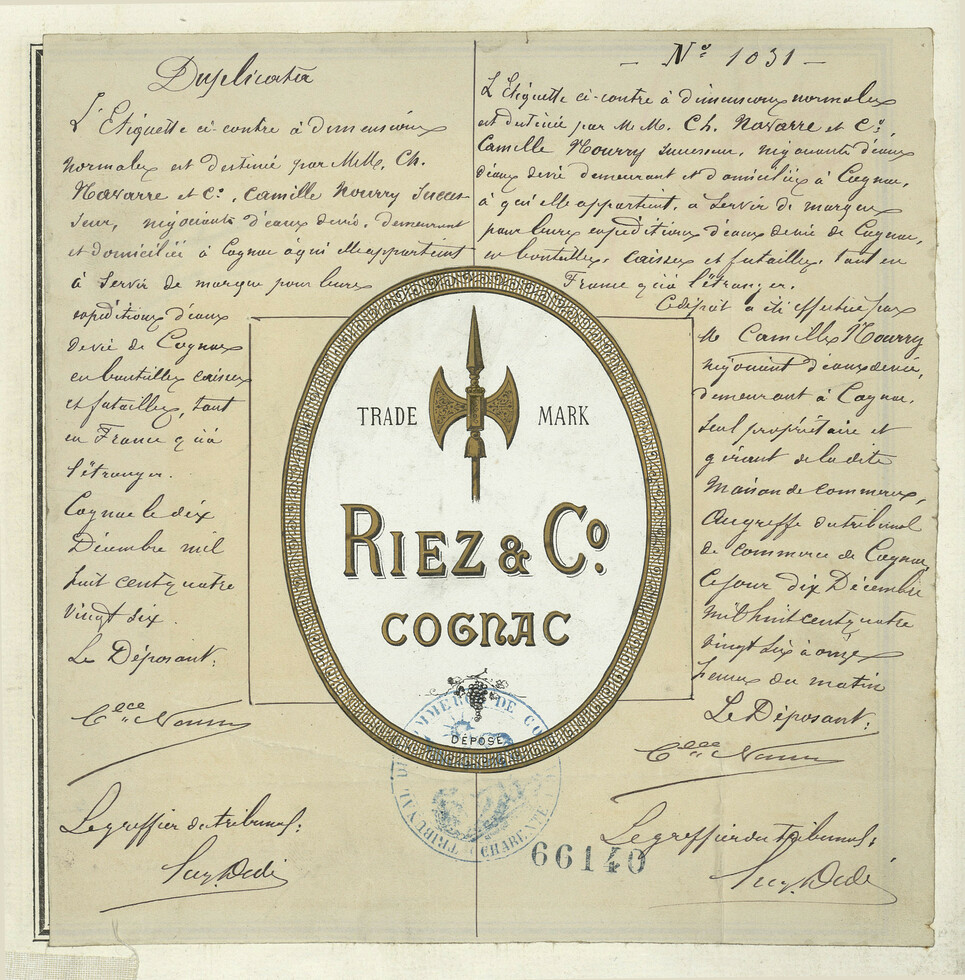 Duplicata
L'Etiquette ci-contre à dimensions
normales est destinée par M.M. Ch.
Navarre et Cº, Camille Nourry Succes-
seur, négociants d'eaux devie, demeurant
et domiciliés à Cognac à qui elle appartient
à servir de marque pour leurs
expéditions d'eaux
devie de Cognac
en bouteilles caisses
et futailles, tant
en France qu'à
l'étranger.
Cognac le dix
Décembre mil
huit cent quatre
vingt six.
Le Déposant:
Clle Nourry
Le greffier du tribunal:
Nº 1031
L'Etiquette ci-contre à dimensions normales
est destinée par M.M. Ch. Navarre et Cº,
Camille Nourry successeur, négociants d'eaux
d'eaux devie demeurant et domiciliés à Cognac,
à qui elle appartient, à servir de marque
pour leurs expéditions d'eaux devie de Cognac,
en bouteilles, caisses et futailles, tant en
France qu'à l'étranger.
Ce dépôt a été effectué par
M. Camille Nourry
négociant d'eaux devie,
demeurant à Cognac,
seul propriétaire et
gérant de la dite
Maison de commerce,
au greffe du tribunal
de commerce de Cognac
ce jour dix Décembre
mil huit cent quatre
vingt six à onze
heures du matin
Le Déposant:
Clle Nourry
Le greffier du tribunal:
TRADE MARK
RIEZ & Cº.
COGNAC
DÉPOSÉ
TRIBUNAL DE COMMERCE DE CO
CHARENTE
66140